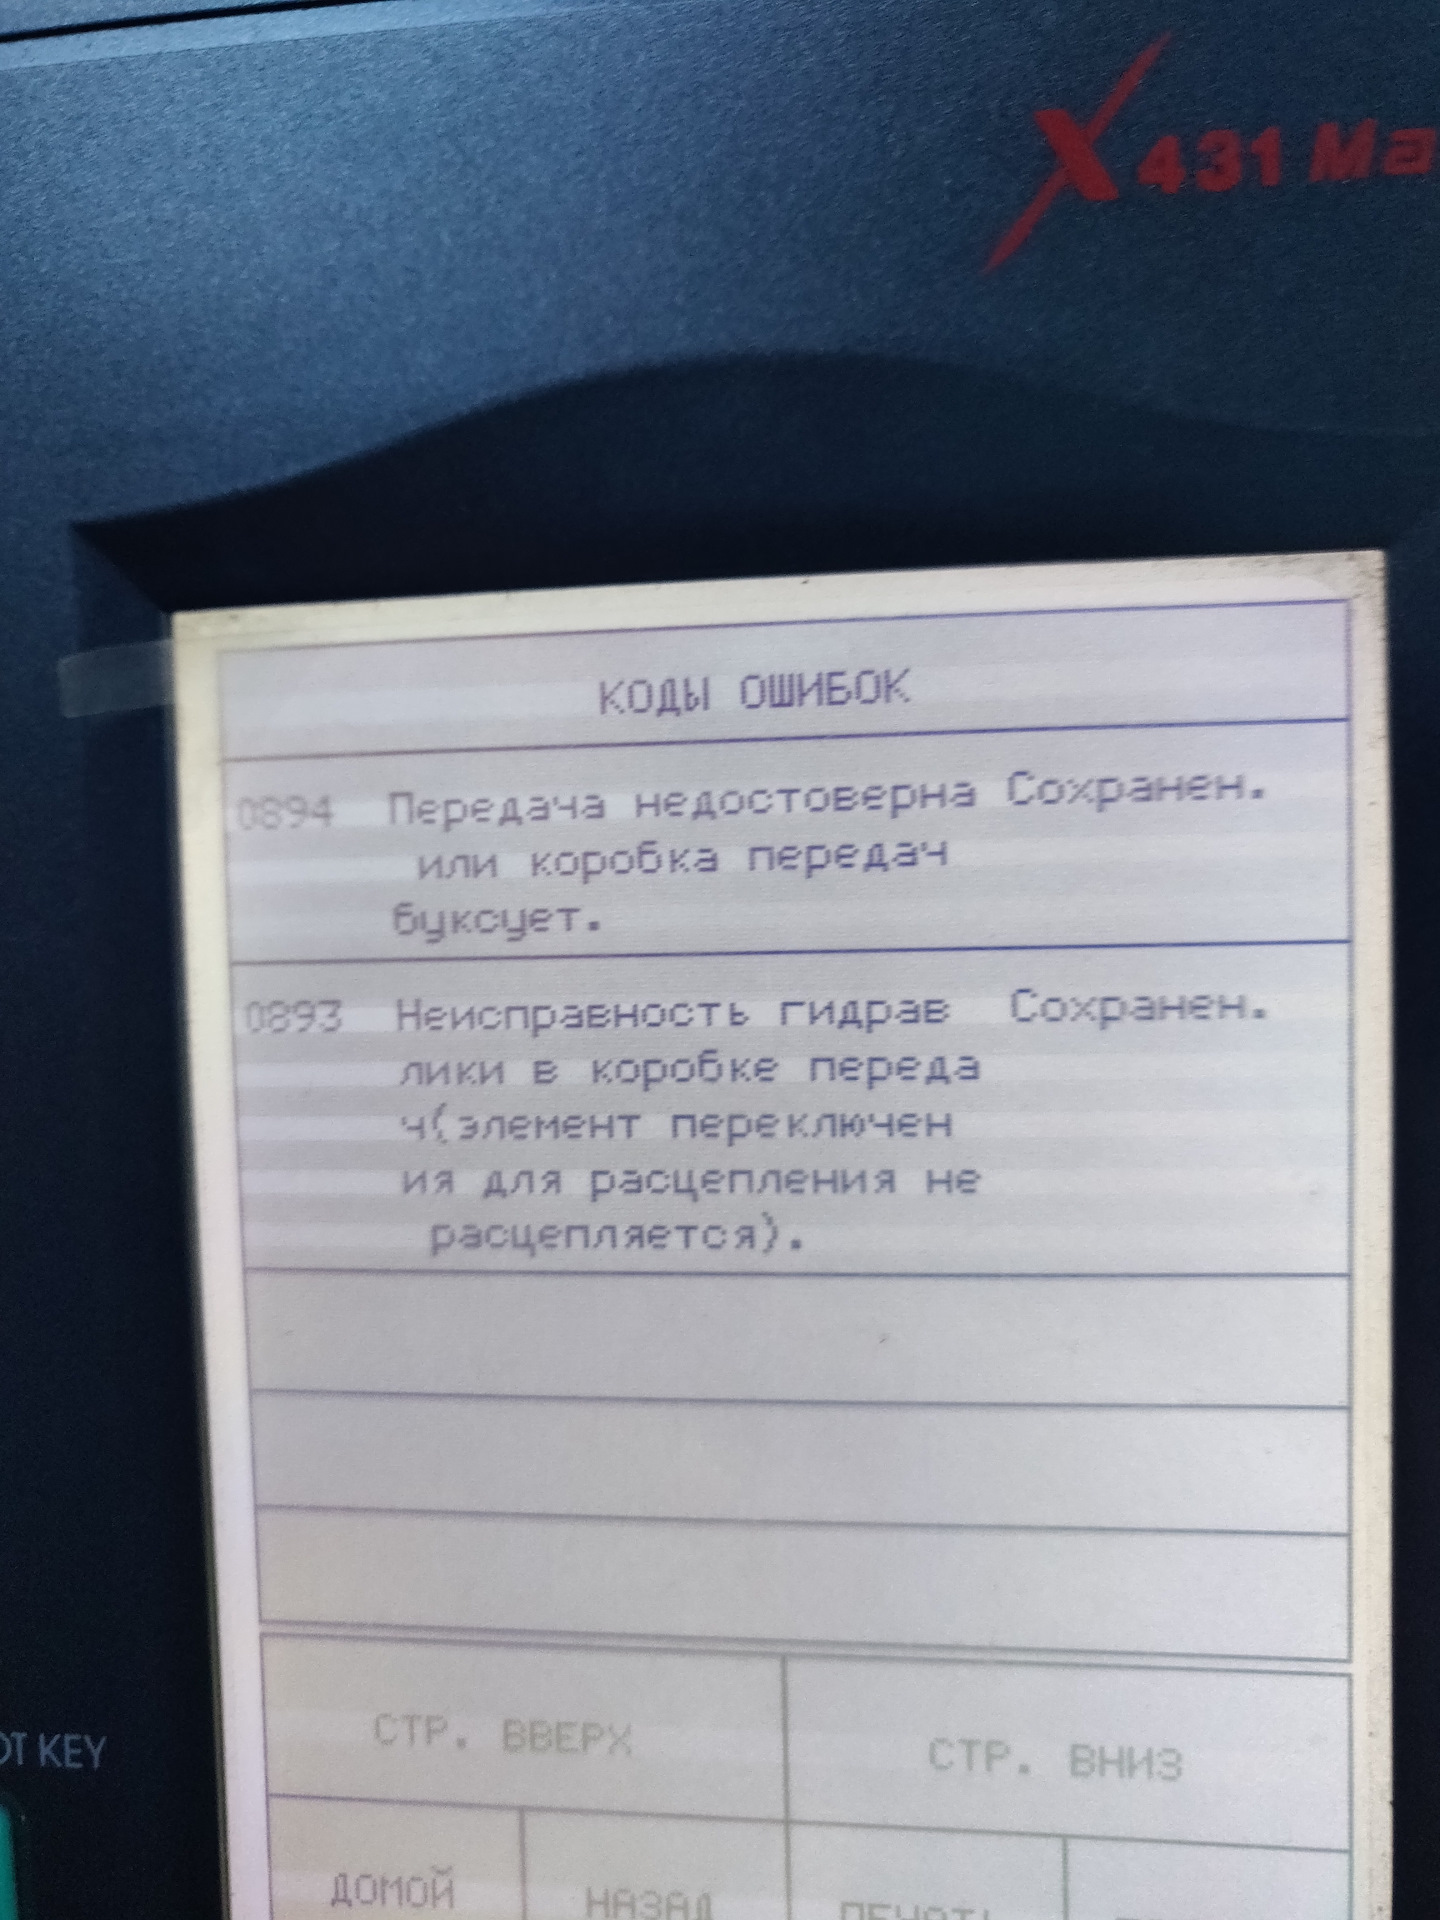 X431 Ma
КОДЫ ОШИБОК
0894 Передача недостоверна Сохранен.
или коробка передач
буксует.
0893 Неисправность гидрав Сохранен.
лики в коробке переда
ч(элемент переключен
ия для расцепления не
расцепляется).
СТР. ВВЕРХ СТР. ВНИЗ
OT KEY
ДОМОЙ НАЗАД ПЕЧАТЬ